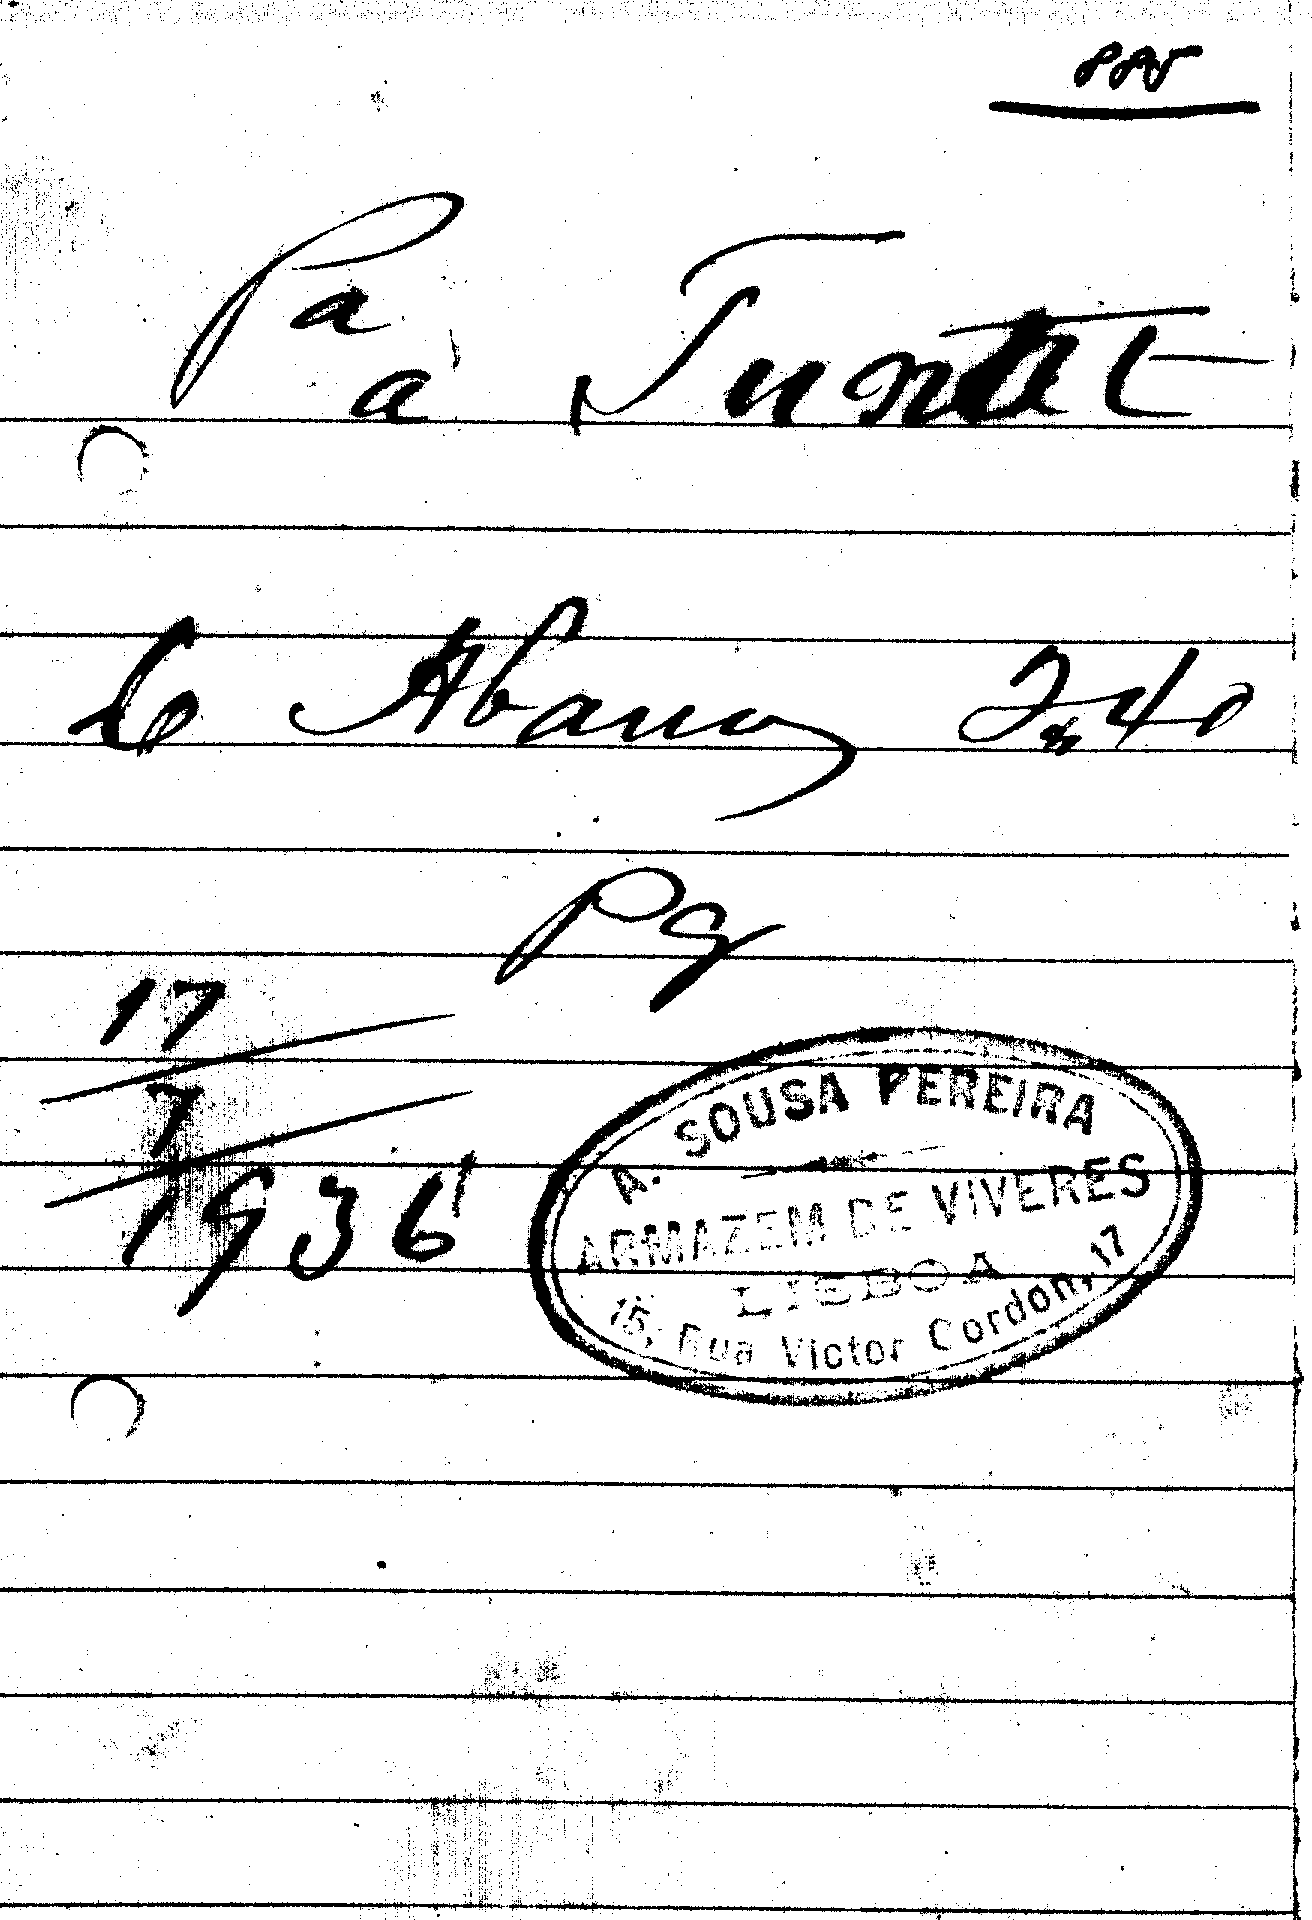 885
Pa
a
6 Abanos 2$40
Pg
17
7
1936
A. SOUSA PEREIRA
ARMAZEM DE VIVERES
LISBOA
15, Rua Victor Cordon, 17